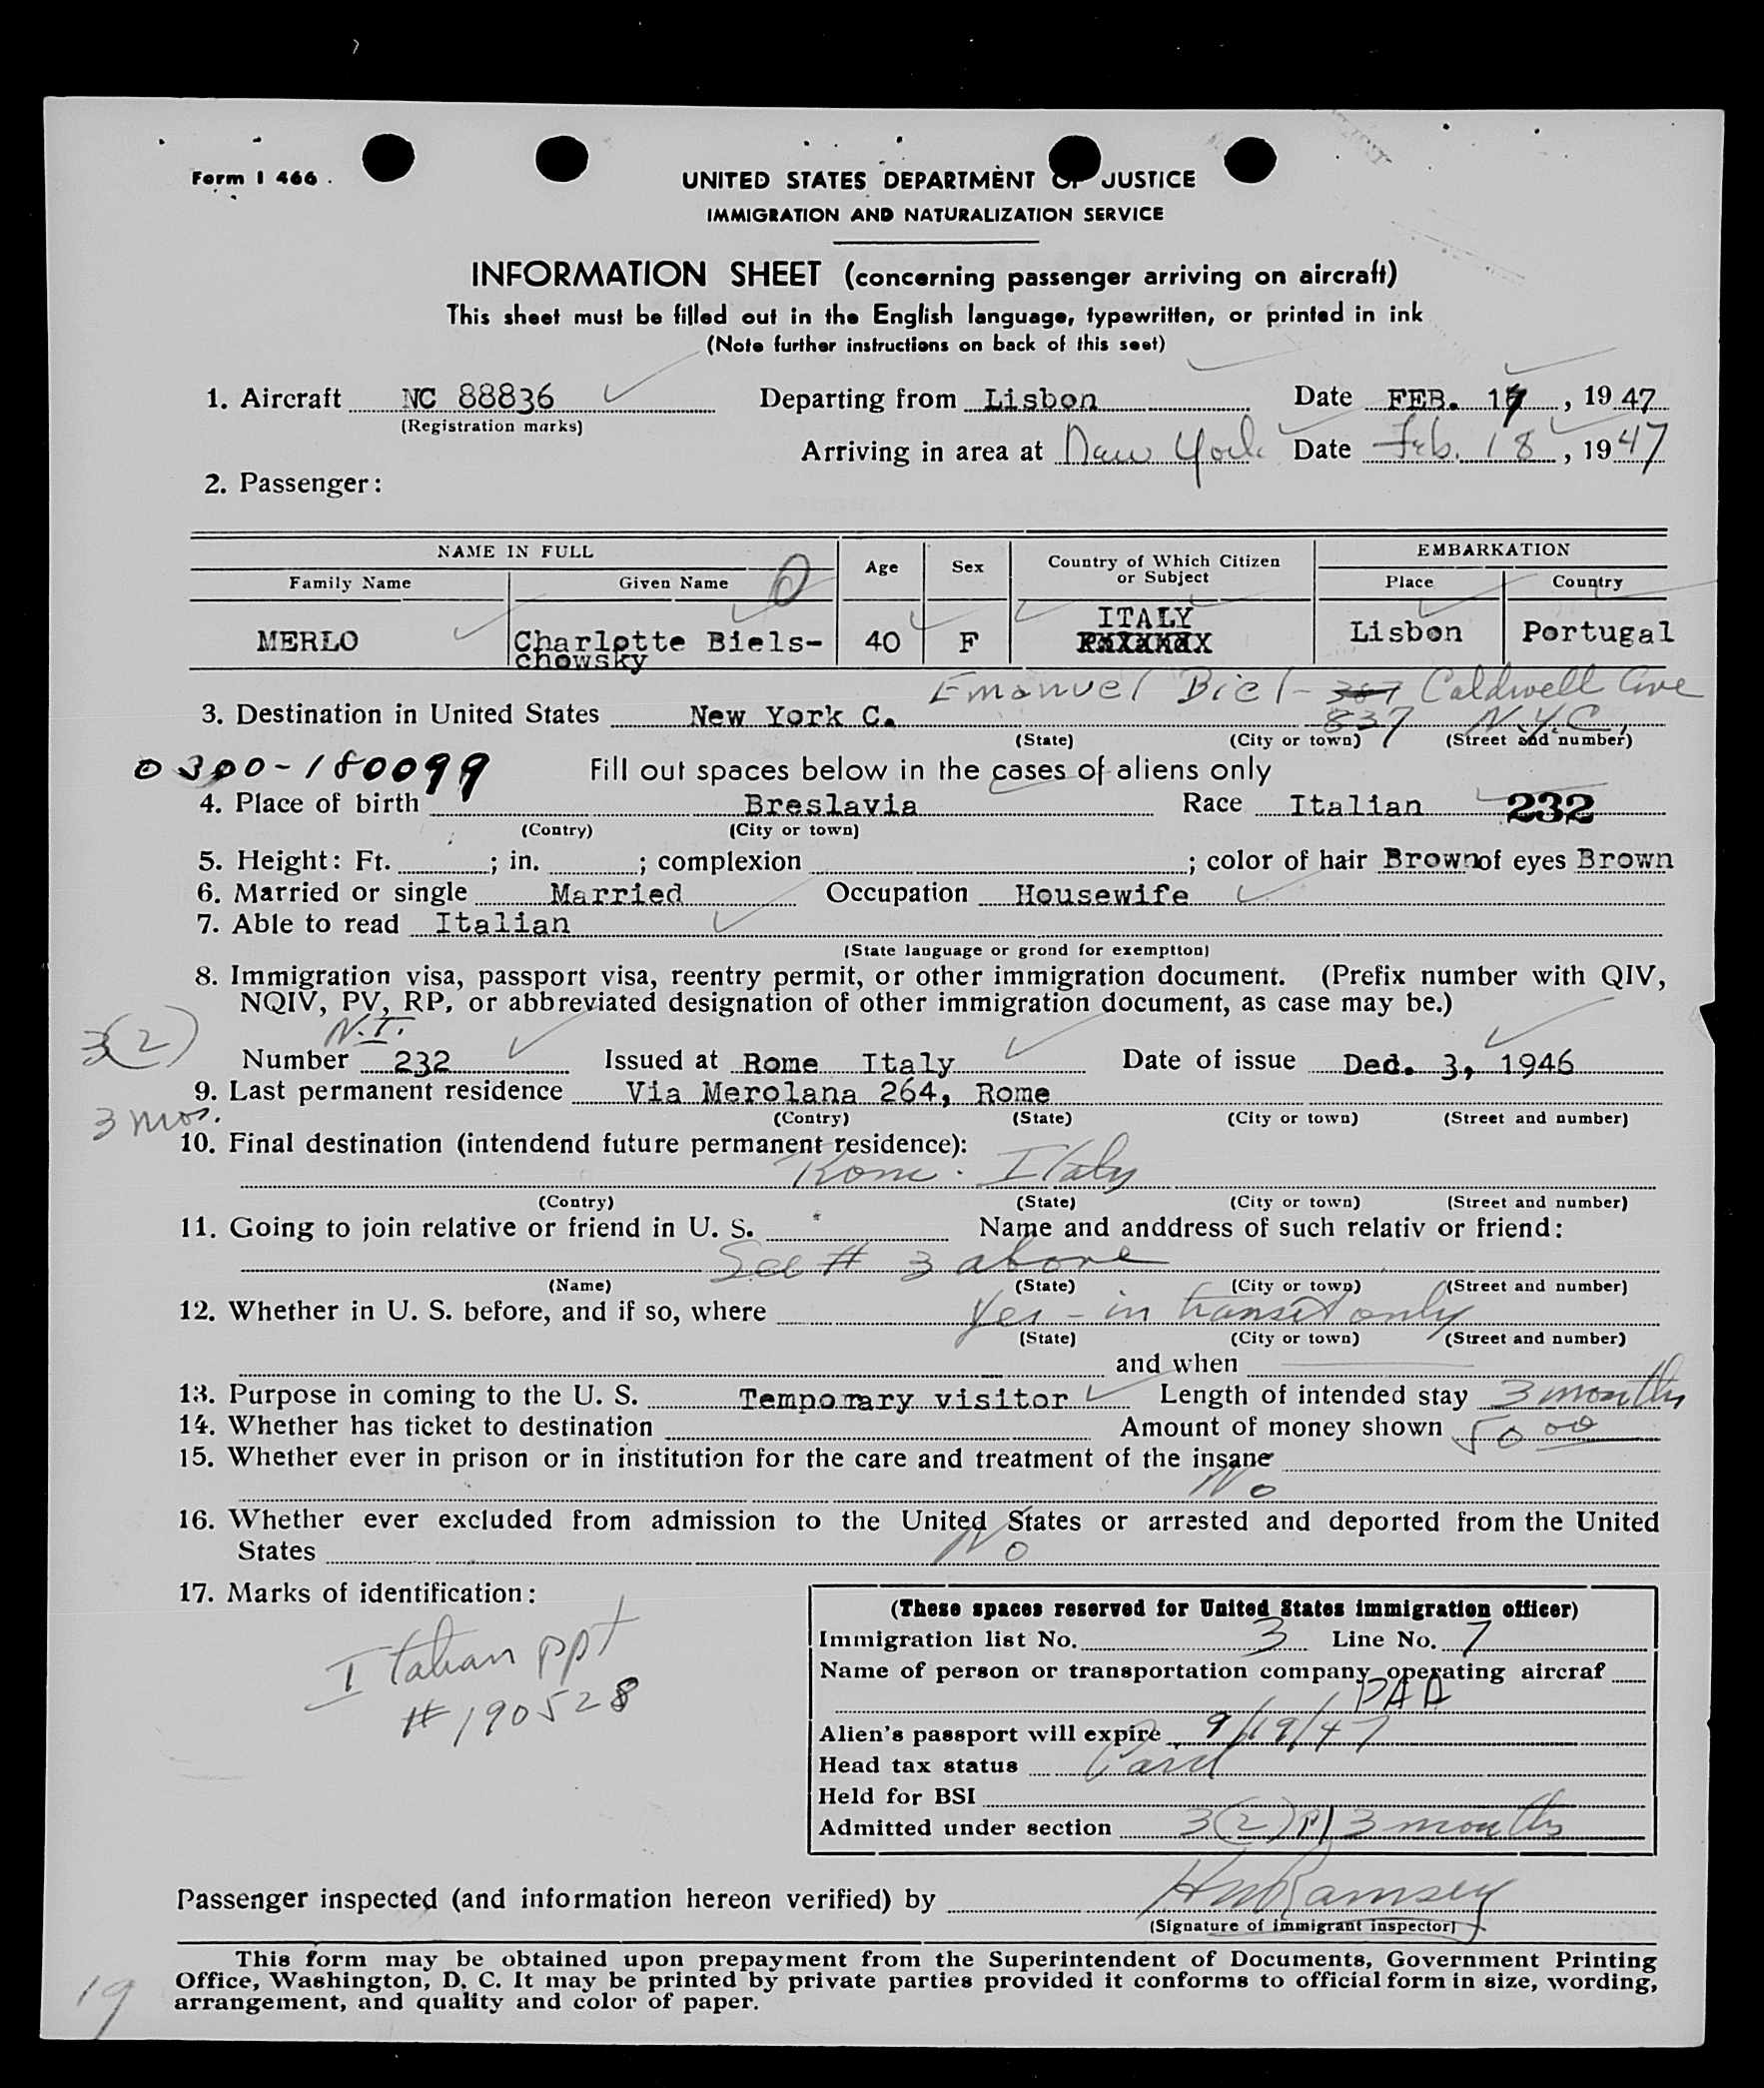 Form I 466.
UNITED STATES DEPARTMENT OF JUSTICE
IMMIGRATION AND NATURALIZATION SERVICE
INFORMATION SHEET (concerning passenger arriving on aircraft)
This sheet must be filled out in the English language, typewritten, or printed in ink
(Note further instructions on back of this seet)
1. Aircraft NC 88836 Departing from Lisbon Date FEB. 17, 1947
(Registration marks)
Arriving in area at New York Date Feb. 18, 1947
2. Passenger:
NAME IN FULL Age Sex Country of Which Citizen or Subject EMBARKATION
Family Name Given Name Place Country
ITALY
MERLO Charlotte Biels- 40 F Lisbon Portugal
chowsky
Emanuel Biel - 367 Caldwell Ave
3. Destination in United States New York C. 837 N.Y.C.
(State) (City or town) (Street and number)
0300-180099 Fill out spaces below in the cases of aliens only
4. Place of birth Breslavia Race Italian 232
(Contry) (City or town)
5. Height: Ft. ; in. ; complexion ; color of hair Brown of eyes Brown
6. Married or single Married Occupation Housewife
7. Able to read Italian
(State language or grond for exemptton)
8. Immigration visa, passport visa, reentry permit, or other immigration document. (Prefix number with QIV,
NQIV, PV, RP, or abbreviated designation of other immigration document, as case may be.)
3(2) N.I.
Number 232 Issued at Rome Italy Date of issue Ded. 3, 1946
9. Last permanent residence Via Merolana 264, Rome
3 mos. (Contry) (State) (City or town) (Street and number)
10. Final destination (intendend future permanent residence):
Rome. Italy
(Contry) (State) (City or town) (Street and number)
11. Going to join relative or friend in U. S. Name and anddress of such relativ or friend:
See # 3 above
(Name) (State) (City or town) (Street and number)
12. Whether in U. S. before, and if so, where Yes - in transit only
(State) (City or town) (Street and number)
and when
13. Purpose in coming to the U. S. Temporary visitor Length of intended stay 3 months
14. Whether has ticket to destination Amount of money shown 50 00
15. Whether ever in prison or in institution for the care and treatment of the insane
No
16. Whether ever excluded from admission to the United States or arrested and deported from the United
States No
17. Marks of identification:
Italian ppt
# 190528
(These spaces reserved for United States immigration officer)
Immigration list No. 3 Line No. 7
Name of person or transportation company operating aircraf
PAA
Alien's passport will expire 9/19/47
Head tax status
Held for BSI
Admitted under section 3(2) P 3 months
Passenger inspected (and information hereon verified) by HM Ramsey
(Signature of immigrant inspector)
This form may be obtained upon prepayment from the Superintendent of Documents, Government Printing
Office, Washington, D. C. It may be printed by private parties provided it conforms to official form in size, wording,
arrangement, and quality and color of paper.
19